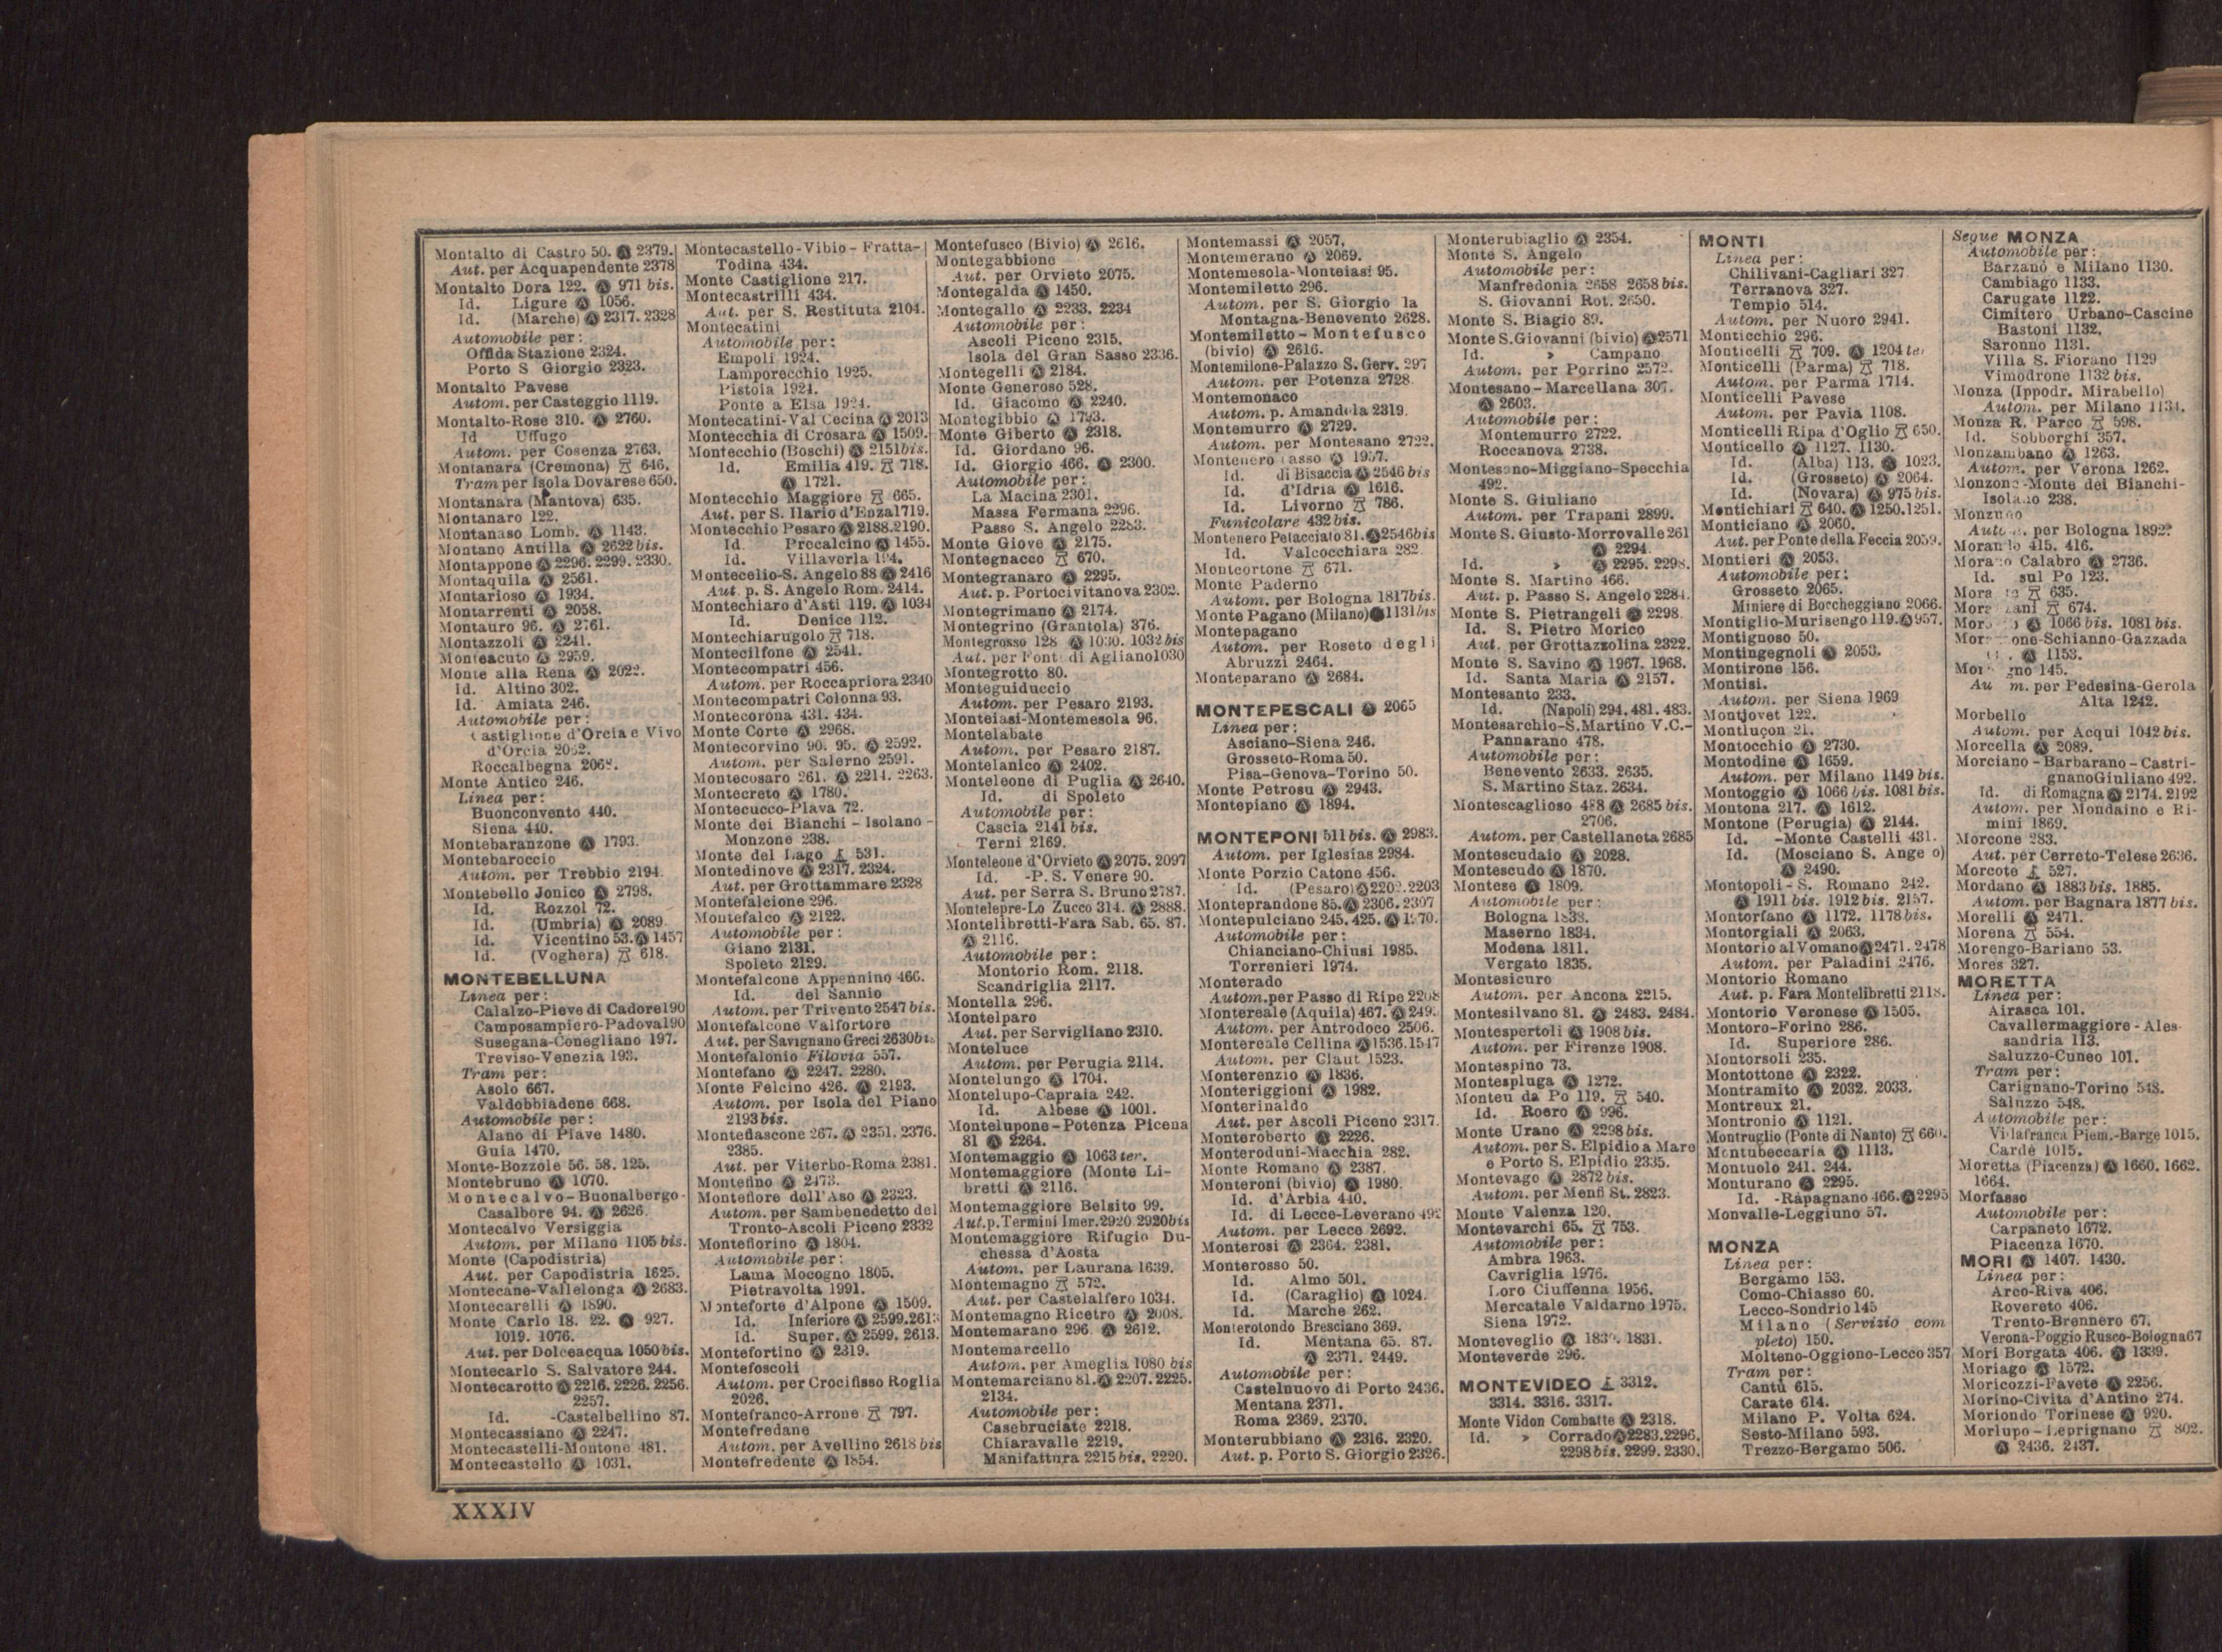 Montalto di Castro 50. Ⓐ 2379.
Aut. per Acquapendente 2378
Montalto Dora 122. Ⓐ 971 bis.
Id. Ligure Ⓐ 1056.
Id. (Marche) Ⓐ 2317. 2328
Automobile per:
Offida Stazione 2324.
Porto S Giorgio 2323.
Montalto Pavese
Autom. per Casteggio 1119.
Montalto-Rose 310. Ⓐ 2760.
Id Uffugo
Autom. per Cosenza 2763.
Montanara (Cremona) 646.
Tram per Isola Dovarese 650.
Montanara (Mantova) 635.
Montanaro 122.
Montanaso Lomb. Ⓐ 1143.
Montano Antilla Ⓐ 2622 bis.
Montappone Ⓐ 2296. 2299. 2330.
Montaquila Ⓐ 2561.
Montarioso Ⓐ 1934.
Montarrenti Ⓐ 2058.
Montauro 96. Ⓐ 2761.
Montazzoli Ⓐ 2241.
Monteacuto Ⓐ 2959.
Monte alla Rena Ⓐ 2022.
Id. Altino 302.
Id. Amiata 246.
Automobile per:
Castiglione d'Orcia e Vivo
d'Orcia 2052.
Roccalbegna
Monte Antico 246.
Linea per:
Buonconvento 440.
Siena 440.
Montebaranzone Ⓐ 1793.
Montebaroccio
Autom. per Trebbio 2194.
Montebello Jonico Ⓐ 2798.
Id. Rozzol 72.
Id. (Umbria) Ⓐ 2089.
Id. Vicentino 53. Ⓐ 1457
Id. (Voghera) 618.
MONTEBELLUNA
Linea per:
Calalzo-Pieve di Cadore 190
Camposampiero-Padova 190
Susegana-Conegliano 197.
Treviso-Venezia 193.
Tram per:
Asolo 667.
Valdobbiadene 668.
Automobile per:
Alano di Piave 1480.
Guia 1470.
Monte-Bozzole 56. 58. 125.
Montebruno Ⓐ 1070.
Montecalvo-Buonalbergo-
Casalbore 94. Ⓐ 2626.
Montecalvo Versiggia
Autom. per Milano 1105 bis.
Monte (Capodistria)
Aut. per Capodistria 1625.
Montecane-Vallelonga Ⓐ 2683.
Montecarelli Ⓐ 1890.
Monte Carlo 18. 22. Ⓐ 927.
1019. 1076.
Aut. per Dolceacqua 1050 bis.
Montecarlo S. Salvatore 244.
Montecarotto Ⓐ 2216. 2226. 2256.
2257.
Id. -Castelbellino 87.
Montecassiano Ⓐ 2247.
Montecastelli-Montone 481.
Montecastello Ⓐ 1031.
Montecastello-Vibio-Fratta-
Todina 434.
Monte Castiglione 217.
Montecastrilli 434.
Aut. per S. Restituta 2104.
Montecatini
Automobile per:
Empoli 1924.
Lamporecchio 1925.
Pistoia 1924.
Ponte a Elsa 1924.
Montecatini-Val Cecina Ⓐ 2013
Montecchia di Crosara Ⓐ 1509.
Montecchio (Boschi) Ⓐ 2151 bis.
Id. Emilia 419. 718.
Ⓐ 1721.
Montecchio Maggiore 665.
Aut. per S. Ilario d'Enza 1719.
Montecchio Pesaro Ⓐ 2188. 2190.
Id. Precalcino Ⓐ 1455.
Id. Villaverla 194.
Montecelio-S. Angelo 88 Ⓐ 2416
Aut. p. S. Angelo Rom. 2414.
Montechiaro d'Asti 119. Ⓐ 1034
Id. Denice 112.
Montechiarugolo 718.
Montecilfone Ⓐ 2541.
Montecompatri 456.
Autom. per Roccapriora 2340
Montecompatri Colonna 93.
Montecorona 431. 434.
Monte Corte Ⓐ 2968.
Montecorvino 90. 95. Ⓐ 2592.
Autom. per Salerno 2591.
Montecosaro 261. Ⓐ 2214. 2263.
Montecreto Ⓐ 1780.
Montecucco-Plava 72.
Monte dei Bianchi-Isolano-
Monzone 238.
Monte del Lago 531.
Montedinove Ⓐ 2317. 2324.
Aut. per Grottammare 2328
Montefalcione 296.
Montefalco Ⓐ 2122.
Automobile per:
Giano 2131.
Spoleto 2129.
Montefalcone Appennino 466.
Id. del Sannio
Autom. per Trivento 2547 bis.
Montefalcone Valfortore
Aut. per Savignano Greci 2630 bis
Montefalonio Filovia 557.
Montefano Ⓐ 2247. 2280.
Monte Felcino 426. Ⓐ 2193.
Autom. per Isola del Piano
2193 bis.
Montefiascone 267. Ⓐ 2351. 2376.
2385.
Aut. per Viterbo-Roma 2381.
Montefino Ⓐ 2473.
Montefiore dell'Aso Ⓐ 2323.
Autom. per Sambenedetto del
Tronto-Ascoli Piceno 2332
Montefiorino Ⓐ 1804.
Automobile per:
Lama Mocogno 1805.
Pietravolta 1991.
Monteforte d'Alpone Ⓐ 1509.
Id. Inferiore Ⓐ 2599. 2613
Id. Super. Ⓐ 2599. 2613.
Montefortino Ⓐ 2319.
Montefoscoli
Autom. per Crocifisso Roglia
2026.
Montefranco-Arrone 797.
Montefredane
Autom. per Avellino 2618 bis
Montefredente Ⓐ 1854.
Montefusco (Bivio) Ⓐ 2616.
Montegabbione
Aut. per Orvieto 2075.
Montegalda Ⓐ 1450.
Montegallo Ⓐ 2233. 2234
Automobile per:
Ascoli Piceno 2315.
Isola del Gran Sasso 2336.
Montegelli Ⓐ 2184.
Monte Generoso 528.
Id. Giacomo Ⓐ 2240.
Montegibbio Ⓐ 1793.
Monte Giberto Ⓐ 2318.
Id. Giordano 96.
Id. Giorgio 466. Ⓐ 2300.
Automobile per:
La Macina 2301.
Massa Fermana 2296.
Passo S. Angelo 2283.
Monte Giove Ⓐ 2175.
Montegnacco 670.
Montegranaro Ⓐ 2295.
Aut. p. Portocivitanova 2302.
Montegrimano Ⓐ 2174.
Montegrino (Grantola) 376.
Montegrosso 128 Ⓐ 1030. 1032 bis
Aut. per Font. di Agliano 1030
Montegrotto 80.
Monteguiduccio
Autom. per Pesaro 2193.
Monteiasi-Montemesola 96.
Montelabate
Autom. per Pesaro 2187.
Montelanico Ⓐ 2402.
Monteleone di Puglia Ⓐ 2640.
Id. di Spoleto
Automobile per:
Cascia 2141 bis.
Terni 2169.
Monteleone d'Orvieto Ⓐ 2075. 2097
Id. -P. S. Venere 90.
Aut. per Serra S. Bruno 2787.
Montelepre-Lo Zucco 314. Ⓐ 2888.
Montelibretti-Fara Sab. 65. 87.
Ⓐ 2116.
Automobile per:
Montorio Rom. 2118.
Scandriglia 2117.
Montella 296.
Montelparo
Aut. per Servigliano 2310.
Monteluce
Autom. per Perugia 2114.
Montelungo Ⓐ 1704.
Montelupo-Capraia 242.
Id. Albese Ⓐ 1001.
Montelupone-Potenza Picena
81 Ⓐ 2264.
Montemaggio Ⓐ 1063 ter.
Montemaggiore (Monte Li-
bretti Ⓐ 2116.
Montemaggiore Belsito 99.
Aut. p. Termini Imer. 2920 2920 bis
Montemaggiore Rifugio Du-
chessa d'Aosta
Autom. per Laurana 1639.
Montemagno 572.
Aut. per Castelalfero 1034.
Montemagno Ricetro Ⓐ 2008.
Montemarano 296. Ⓐ 2612.
Montemarcello
Autom. per Ameglia 1080 bis
Montemarciano 81. Ⓐ 2207. 2225.
2134.
Automobile per:
Casebruciate 2218.
Chiaravalle 2219.
Manifattura 2215 bis. 2220.
Montemassi Ⓐ 2057.
Montemerano Ⓐ 2069.
Montemesola-Monteiasi 95.
Montemiletto 296.
Autom. per S. Giorgio la
Montagna-Benevento 2628.
Montemiletto-Montefusco
(bivio) Ⓐ 2616.
Montemilone-Palazzo S. Gerv. 297
Autom. per Potenza 2728
Montemonaco
Autom. p. Amandola 2319.
Montemurro Ⓐ 2729.
Autom. per Montesano 2722.
Montenero Sasso Ⓐ 1957.
Id. di Bisaccia Ⓐ 2546 bis
Id. d'Idria Ⓐ 1616.
Id. Livorno 786.
Funicolare 432 bis.
Montenero Petacciato 81. Ⓐ 2546 bis
Id. Valcocchiara 282.
Montcortone 671.
Monte Paderno
Autom. per Bologna 1817 bis.
Monte Pagano (Milano) Ⓐ 1131 bis
Montepagano
Autom. per Roseto degli
Abruzzi 2464.
Monteparano Ⓐ 2684.
MONTEPESCALI Ⓐ 2065
Linea per:
Asciano-Siena 246.
Grosseto-Roma 50.
Pisa-Genova-Torino 50.
Monte Petrosu Ⓐ 2943.
Montepiano Ⓐ 1894.
MONTEPONI 511 bis. Ⓐ 2983.
Autom. per Iglesias 2984.
Monte Porzio Catone 456.
Id. (Pesaro) Ⓐ 2202. 2203
Monteprandone 85. Ⓐ 2306. 2307
Montepulciano 245. 425. Ⓐ 1970.
Automobile per:
Chianciano-Chiusi 1985.
Torrenieri 1974.
Monterado
Autom. per Passo di Ripe 2208
Montereale (Aquila) 467. Ⓐ
Autom. per Antrodoco 2506.
Montereale Cellina Ⓐ 1536. 1547
Autom. per Claut 1523.
Monterenzio Ⓐ 1836.
Monteriggioni Ⓐ 1982.
Monterinaldo
Aut. per Ascoli Piceno 2317.
Monteroberto Ⓐ 2226.
Monteroduni-Macchia 282.
Monte Romano Ⓐ 2387.
Monteroni (bivio) Ⓐ 1980.
Id. d'Arbia 440.
Id. di Lecce-Leverano 492
Autom. per Lecce 2692.
Monterosi Ⓐ 2364. 2381.
Monterosso 50.
Id. Almo 501.
Id. (Caraglio) Ⓐ 1024.
Id. Marche 262.
Monterotondo Bresciano 369.
Id. Mentana 65. 87.
Ⓐ 2371. 2449.
Automobile per:
Castelnuovo di Porto 2436.
Mentana 2371.
Roma 2369. 2370.
Monterubbiano Ⓐ 2316. 2320.
Aut. p. Porto S. Giorgio 2326.
Monterubiaglio Ⓐ 2354.
Monte S. Angelo
Automobile per:
Manfredonia 2658 2658 bis.
S. Giovanni Rot. 2650.
Monte S. Biagio 89.
Monte S. Giovanni (bivio) Ⓐ 2571
Id. » Campano
Autom. per Porrino 2572.
Montesano-Marcellana 307.
Ⓐ 2603.
Automobile per:
Montemurro 2722.
Roccanova 2738.
Montesano-Miggiano-Specchia
492.
Monte S. Giuliano
Autom. per Trapani 2899.
Monte S. Giusto-Morrovalle 261
Ⓐ 2294.
Id. » Ⓐ 2295. 2298.
Monte S. Martino 466.
Aut. p. Passo S. Angelo 2284.
Monte S. Pietrangeli Ⓐ 2298.
Id. S. Pietro Morico
Aut. per Grottazzolina 2322.
Monte S. Savino Ⓐ 1967. 1968.
Id. Santa Maria Ⓐ 2157.
Montesanto 233.
Id. (Napoli) 294. 481. 483.
Montesarchio-S. Martino V.C.-
Pannarano 478.
Automobile per:
Benevento 2633. 2635.
S. Martino Staz. 2634.
Montescaglioso 488 Ⓐ 2685 bis.
2706.
Autom. per Castellaneta 2685
Montescudaio Ⓐ 2028.
Montescudo Ⓐ 1870.
Montese Ⓐ 1809.
Automobile per:
Bologna 1838.
Maserno 1834.
Modena 1811.
Vergato 1835.
Montesicuro
Autom. per Ancona 2215.
Montesilvano 81. Ⓐ 2483. 2484.
Montespertoli Ⓐ 1908 bis.
Autom. per Firenze 1908.
Montespino 73.
Montespluga Ⓐ 1272.
Monteu da Po 119. 540.
Id. Roero Ⓐ 996.
Monte Urano Ⓐ 2298 bis.
Autom. per S. Elpidio a Mare
e Porto S. Elpidio 2335.
Montevago Ⓐ 2872 bis.
Autom. per Menfi St. 2823.
Monte Valenza 120.
Montevarchi 65. 753.
Automobile per:
Ambra 1963.
Cavriglia 1976.
Loro Ciuffenna 1956.
Mercatale Valdarno 1975.
Siena 1972.
Monteveglio Ⓐ 1831.
Monteverde 296.
MONTEVIDEO 3312.
3314. 3316. 3317.
Monte Vidon Combatte Ⓐ 2318.
Id. » Corrado Ⓐ 2283. 2296.
2298 bis. 2299. 2330.
MONTI
Linea per:
Chilivani-Cagliari 327
Terranova 327.
Tempio 514.
Autom. per Nuoro 2941.
Monticchio 296.
Monticelli 709. Ⓐ 1204 ter
Monticelli (Parma) 718.
Autom. per Parma 1714.
Monticelli Pavese
Autom. per Pavia 1108.
Monticelli Ripa d'Oglio 650.
Monticello Ⓐ 1127. 1130.
Id. (Alba) 113. Ⓐ 1023.
Id. (Grosseto) Ⓐ 2064.
Id. (Novara) Ⓐ 975 bis.
Montichiari 640. Ⓐ 1250. 1251.
Monticiano Ⓐ 2060.
Aut. per Ponte della Feccia 2059.
Montieri Ⓐ 2053.
Automobile per:
Grosseto 2065.
Miniere di Boccheggiano 2066.
Montiglio-Murisengo 119. Ⓐ 957.
Montignoso 50.
Montingegnoli Ⓐ 2053.
Montirone 156.
Montisi.
Autom. per Siena 1969
Montjovet 122.
Montluçon 21.
Montocchio Ⓐ 2730.
Montodine Ⓐ 1659.
Autom. per Milano 1149 bis.
Montoggio Ⓐ 1066 bis. 1081 bis.
Montona 217. Ⓐ 1612.
Montone (Perugia) Ⓐ 2144.
Id. -Monte Castelli 431.
Id. (Mosciano S. Angelo)
Ⓐ 2490.
Montopoli-S. Romano 242.
Ⓐ 1911 bis. 1912 bis. 2157.
Montorfano Ⓐ 1172. 1178 bis.
Montorgiali Ⓐ 2063.
Montorio al Vomano Ⓐ 2471. 2478
Autom. per Paladini 2476.
Montorio Romano
Aut. p. Fara Montelibretti 2118.
Montorio Veronese Ⓐ 1505.
Montoro-Forino 286.
Id. Superiore 286.
Montorsoli 235.
Montottone Ⓐ 2322.
Montramito Ⓐ 2032. 2033.
Montreux 21.
Montronio Ⓐ 1121.
Montruglio (Ponte di Nanto) 660.
Montubeccaria Ⓐ 1113.
Montuolo 241. 244.
Monturano Ⓐ 2295.
Id. -Rapagnano 466. Ⓐ 2295
Monvalle-Leggiuno 57.
MONZA
Linea per:
Bergamo 153.
Como-Chiasso 60.
Lecco-Sondrio 145
Milano (Servizio com
pleto) 150.
Molteno-Oggiono-Lecco 357
Tram per:
Cantù 615.
Carate 614.
Milano P. Volta 624.
Sesto-Milano 593.
Trezzo-Bergamo 506.
Segue MONZA
Automobile per:
Barzanò e Milano 1130.
Cambiago 1133.
Carugate 1122.
Cimitero Urbano-Cascine
Bastoni 1132.
Saronno 1131.
Villa S. Fiorano 1129
Vimodrone 1132 bis.
Monza (Ippodr. Mirabello)
Autom. per Milano 1134.
Monza R. Parco 598.
Id. Sobborghi 357.
Monzambano Ⓐ 1263.
Autom. per Verona 1262.
Monzone-Monte dei Bianchi-
Isolano 238.
Monzuno
Autom. per Bologna 1892?
Morando 415. 416.
Morano Calabro Ⓐ 2736.
Id. sul Po 123.
635.
674.
Ⓐ 1066 bis. 1081 bis.
-Schianno-Gazzada
Ⓐ 1153.
145.
Autom. per Pedesina-Gerola
Alta 1242.
Morbello
Autom. per Acqui 1042 bis.
Morcella Ⓐ 2089.
Morciano-Barbarano-Castri-
gnano Giuliano 492.
Id. di Romagna Ⓐ 2174. 2192
Autom. per Mondaino e Ri-
mini 1869.
Morcone 283.
Aut. per Cerreto-Telese 2636.
Morcote 527.
Mordano Ⓐ 1883 bis. 1885.
Autom. per Bagnara 1877 bis.
Morelli Ⓐ 2471.
Morena 554.
Morengo-Bariano 53.
Mores 327.
MORETTA
Linea per:
Airasca 101.
Cavallermaggiore-Ales-
sandria 113.
Saluzzo-Cuneo 101.
Tram per:
Carignano-Torino 548.
Saluzzo 548.
Automobile per:
Villafranca Piem.-Barge 1015.
Cardè 1015.
Moretta (Piacenza) Ⓐ 1660. 1662.
1664.
Morfasso
Automobile per:
Carpaneto 1672.
Piacenza 1670.
MORI Ⓐ 1407. 1430.
Linea per:
Arco-Riva 406.
Rovereto 406.
Trento-Brennero 67.
Verona-Poggio Rusco-Bologna 67
Mori Borgata 406. Ⓐ 1339.
Moriago Ⓐ 1572.
Moricozzi-Favete Ⓐ 2256.
Morino-Civita d'Antino 274.
Moriondo Torinese Ⓐ 920.
Morlupo-Leprignano 802.
Ⓐ 2436. 2437.
XXXIV